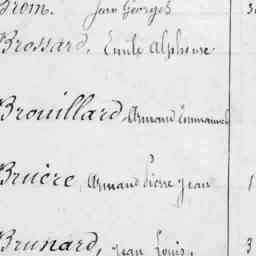 Brom. Jean Georges 3
Brossard, Emile Alphonse
Brouillard, Armand Emmanuel
Bruère, Armand Pierre Jean 1
Brunard, Jean Louis, 3